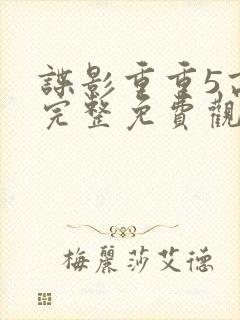 諜影重重5高
完整免費觀
梅麗莎艾德